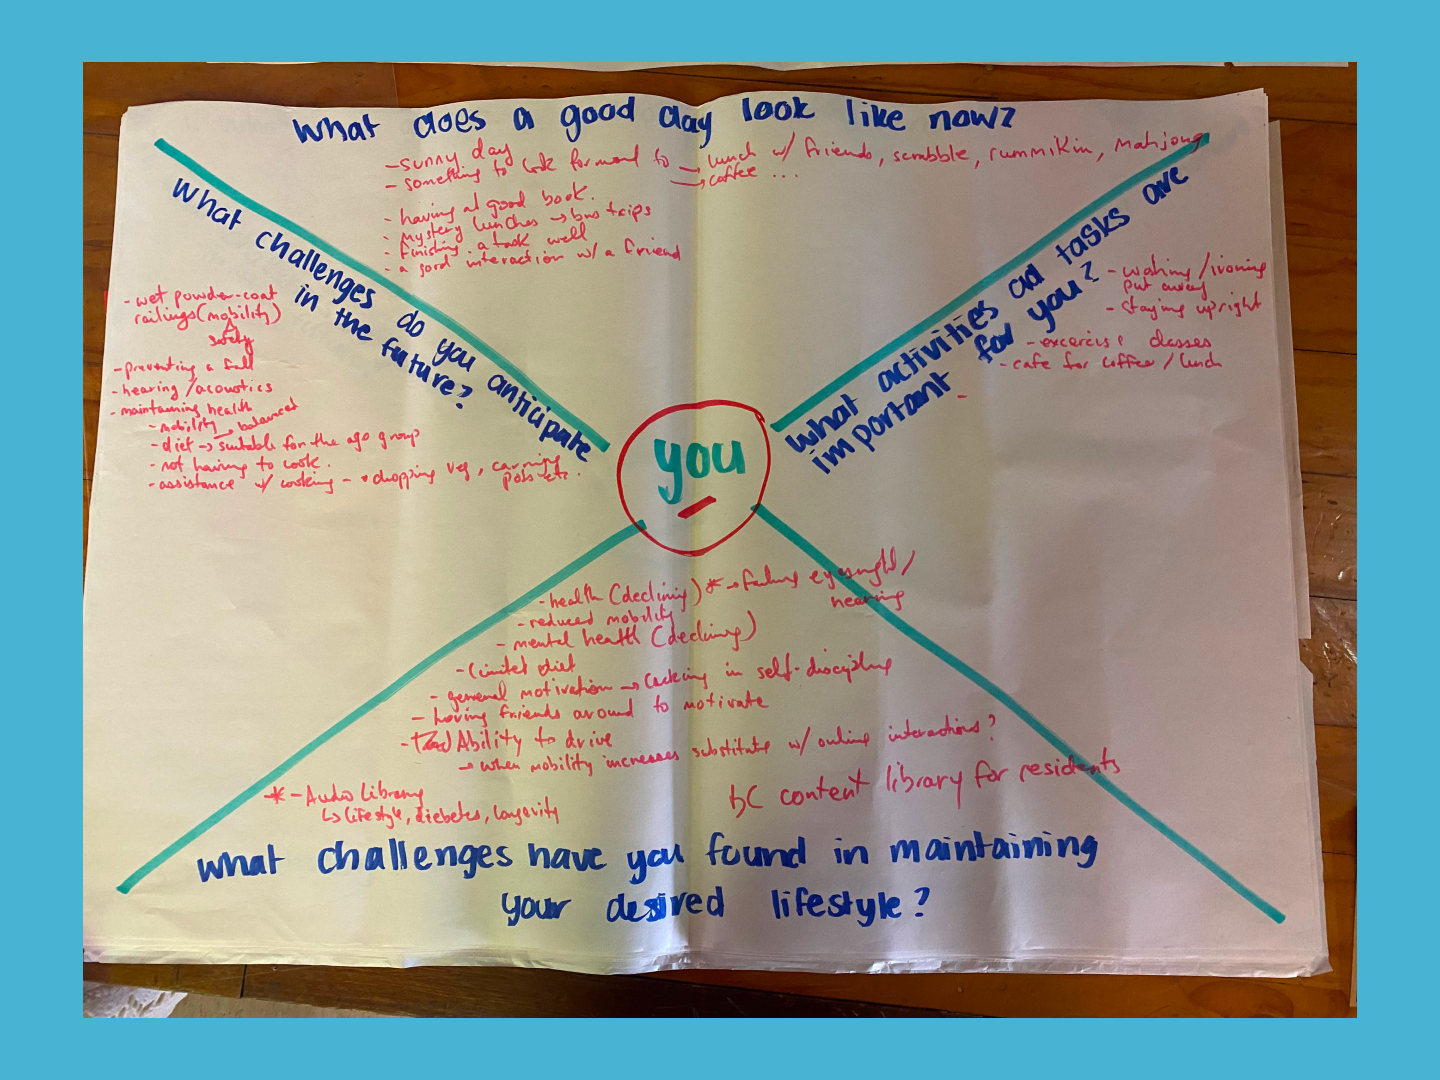 What does a good day look like now?
- sunny day
- something to look forward to → lunch w/ friends, scrabble, rummikin, Mahjong
→ coffee ...
- having a good book.
- mystery lunches → bus trips
- finishing a task well
- a good interaction w/ a friend
What challenges do you anticipate
in the future?
- wet powder-coat
railings (mobility)
safety
- preventing a fall
- hearing / acoustics
- maintaining health
- mobility → balanced
- diet → suitable for the age group
- not having to cook.
- assistance w/ cooking - chopping veg, carrying
pots etc.
What activities ad tasks are
important for you?
- washing / ironing
put away
- staying upright
- excercise classes
- cafe for coffee / lunch
you
- health (declining) * → failing eyesight /
hearing
- reduced mobility
- mental health (declining)
- limited diet
- general motivation → lacking in self-discipline
- having friends around to motivate
- Ability to drive
→ when mobility increases substitute w/ online interactions?
* - Audio Library
↳ lifestyle, diabetes, longevity
bC content library for residents
What challenges have you found in maintaining
your desired lifestyle?